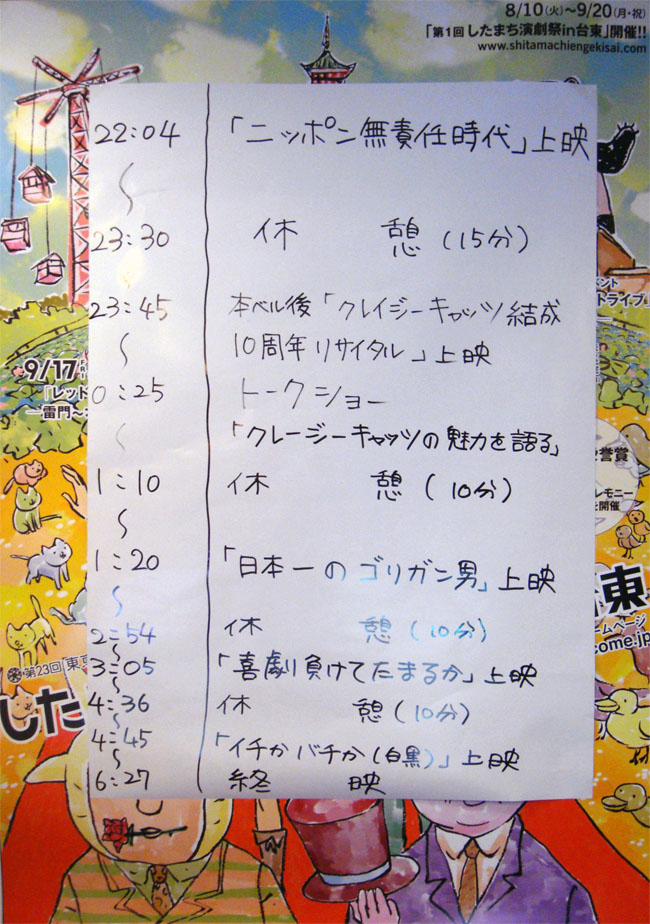 8/10(火)〜9/20(月・祝)
「第1回 したまち演劇祭in台東」開催!!
www.shitamachiengekisai.com
22:04 「ニッポン無責任時代」上映
〜
23:30 休 憩 (15分)
〜
23:45 本ベル後「クレイジーキャッツ結成
〜 10周年リサイタル」上映
0:25 トークショー
〜 「クレージーキャッツの魅力を語る」
1:10 休 憩 (10分)
〜
1:20 「日本一のゴリガン男」上映
〜
2:54 休 憩 (10分)
〜
3:05 「喜劇負けてたまるか」上映
〜
4:36 休 憩 (10分)
〜
4:45 「イチかバチか(白黒)」上映
〜
6:27 終 映
ント
トライブ」
9/17
「レッド
―雷門〜
誉賞
レモニー
を開催
東
ームページ
come.jp
第23回 東京
した